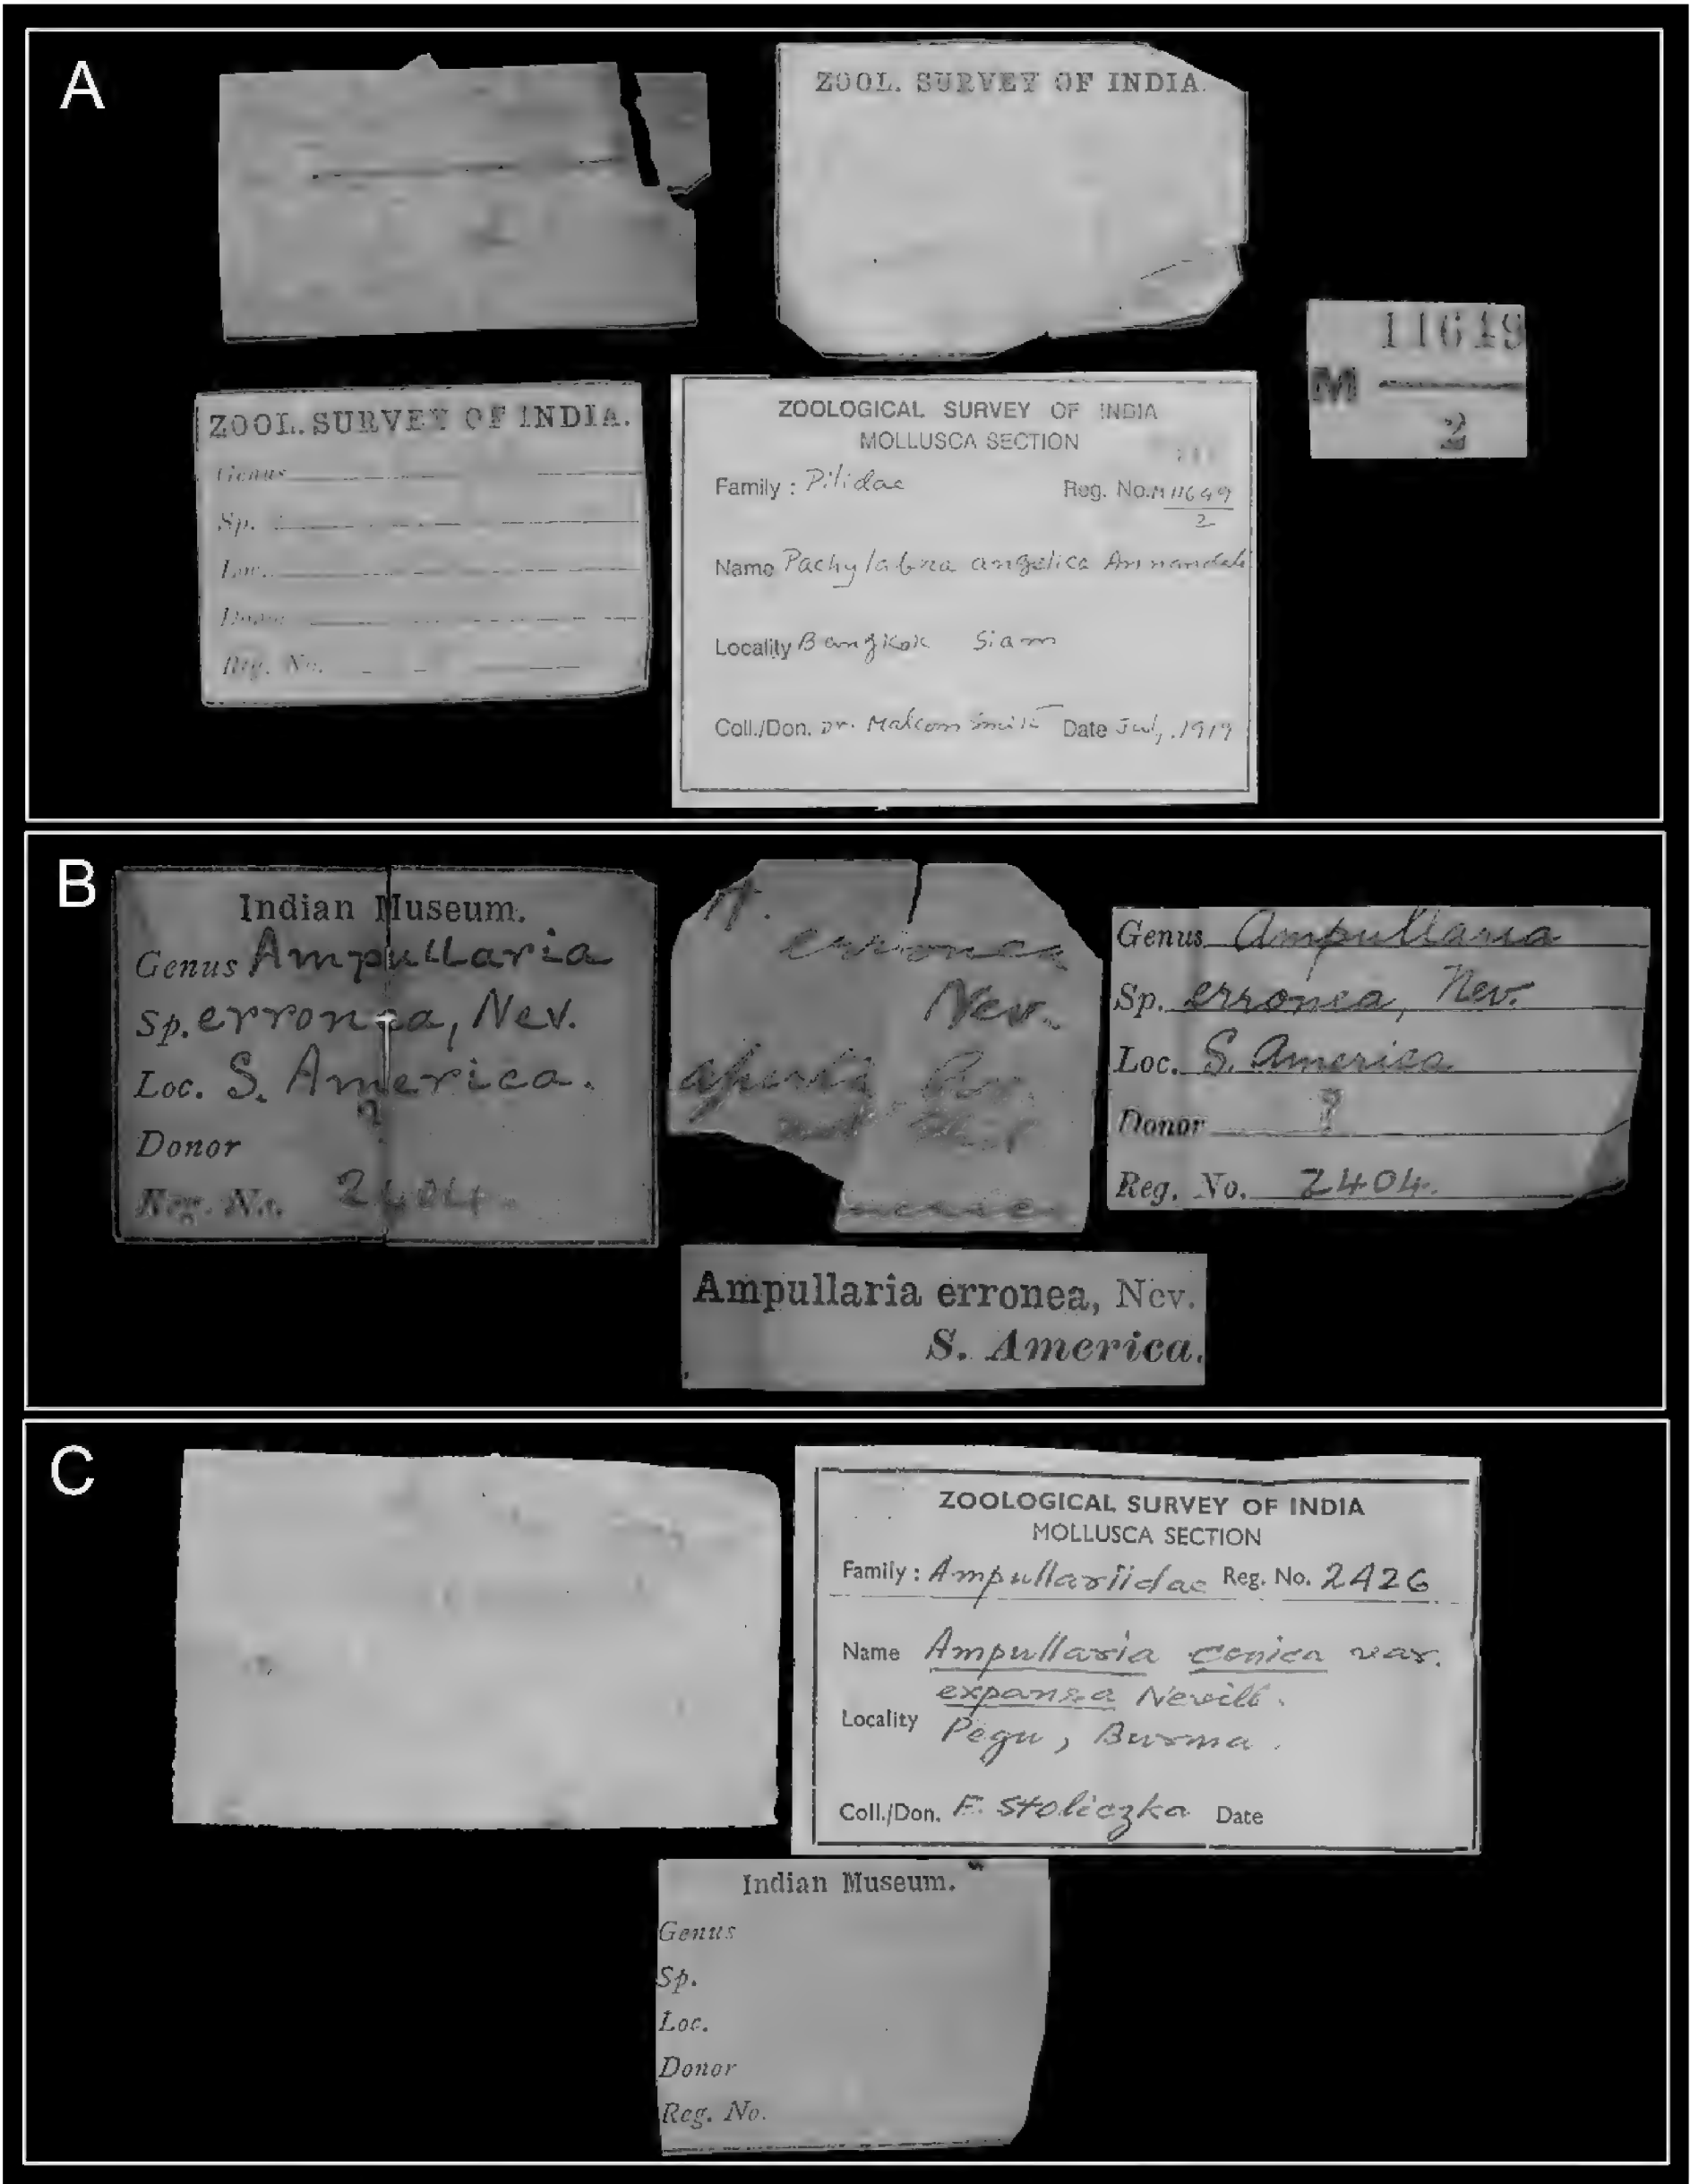 A
ZOOL. SURVEY OF INDIA.
11649
M
2
ZOOL. SURVEY OF INDIA.
Genus
Sp.
Loc.
Donor
Reg. No.
ZOOLOGICAL SURVEY OF INDIA
MOLLUSCA SECTION
Family : Pilidae Reg. No. M11649
2
Name Pachylabra angelica Annandale
Locality Bangkok Siam
Coll./Don. Dr. Malcom Smith Date July, 1919
B
Indian Museum.
Genus Ampullaria
Sp. erronea, Nev.
Loc. S. America.
?
Donor
Reg. No. 2404.
A.
erronea
Nev.
Genus Ampullaria
Sp. erronea, Nev.
Loc. S. America
Donor ?
Reg. No. 2404.
Ampullaria erronea, Nev.
S. America.
C
ZOOLOGICAL SURVEY OF INDIA
MOLLUSCA SECTION
Family : Ampullariidae Reg. No. 2426
Name Ampullaria conica var.
expansa Nevill.
Locality Pegu, Burma.
Coll./Don. F. Stoliczka Date
Indian Museum.
Genus
Sp.
Loc.
Donor
Reg. No.